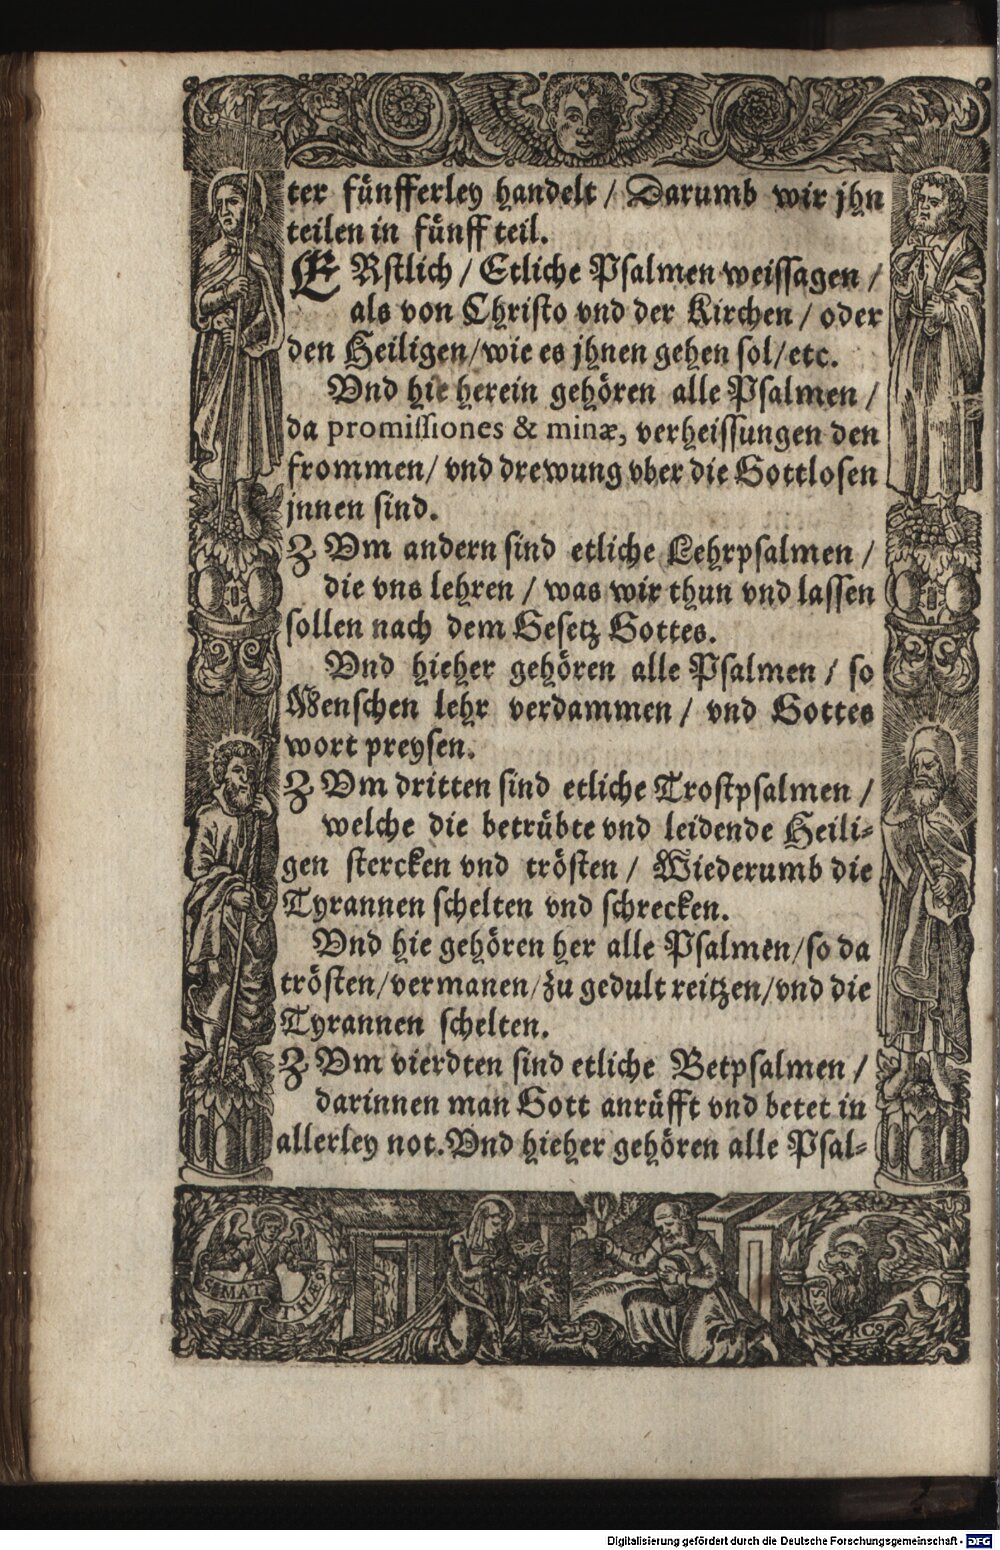 ter fünfferley handelt / Darumb wir jhn
teilen in fünff teil.
ERstlich / Etliche Psalmen weissagen /
als von Christo vnd der Kirchen / oder
den Heiligen / wie es jhnen gehen sol / etc.
Vnd hie herein gehören alle Psalmen /
da promissiones & minæ, verheissungen den
frommen / vnd drewung vber die Gottlosen
jnnen sind.
ZVm andern sind etliche Lehrpsalmen /
die vns lehren / was wir thun vnd lassen
sollen nach dem Gesetz Gottes.
Vnd hieher gehören alle Psalmen / so
Menschen lehr verdammen / vnd Gottes
wort preysen.
ZVm dritten sind etliche Trostpsalmen /
welche die betrübte vnd leidende Heili-
gen stercken vnd trösten / Wiederumb die
Tyrannen schelten vnd schrecken.
Vnd hie gehören her alle Psalmen / so da
trösten / vermanen / zu gedult reitzen / vnd die
Tyrannen schelten.
ZVm vierdten sind etliche Betpsalmen /
darinnen man Gott anrüfft vnd betet in
allerley not. Vnd hieher gehören alle Psal-
S MAT THÆ9
S MARC9
Digitalisierung gefördert durch die Deutsche Forschungsgemeinschaft - DFG